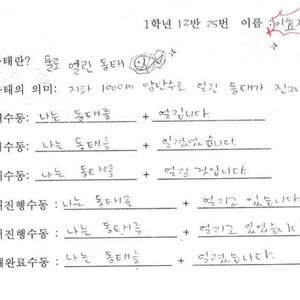 1학년 12반 25번 이름 :이효
태란? 물로 열린 동태
태의 의미: 지하 100cm 암반수로 얼린 동태가 진짜
수동: 나는 동태를 + 얼립니다.
수동: 나는 동태를 + 얼렸었습니다.
수동: 나는 동태를 + 얼릴 것입니다.
진행수동: 나는 동태를 + 얼리고 있습니다.
진행수동: 나는 동태를 + 얼리고 있었습니다
완료수동: 나는 동태를 + 얼렸습니다.